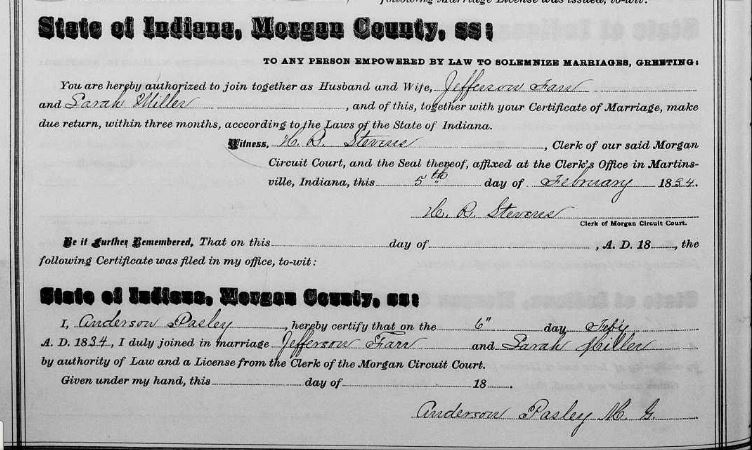 State of Indiana, Morgan County, ss:
TO ANY PERSON EMPOWERED BY LAW TO SOLEMNIZE MARRIAGES, GREETING:
You are hereby authorized to join together as Husband and Wife, Jefferson Farr
and Sarah Miller, and of this, together with your Certificate of Marriage, make
due return, within three months, acccording to the Laws of the State of Indiana.
Witness, H. R. Stevens, Clerk of our said Morgan
Circuit Court, and the Seal thereof, affixed at the Clerk's Office in Martins-
ville, Indiana, this 5th day of February 1834.
H. R. Stevens
Clerk of Morgan Circuit Court.
Be it Further Remembered, That on this day of , A. D. 18 , the
following Certificate was filed in my office, to-wit:
State of Indiana, Morgan County, ss:
I, Anderson Pasley, hereby certify that on the 6" day Feby
A. D. 1834, I duly joined in marriage Jefferson Farr and Sarah Miller
by authority of Law and a License from the Clerk of the Morgan Circuit Court.
Given under my hand, this day of 18 .
Anderson Pasley M. G.